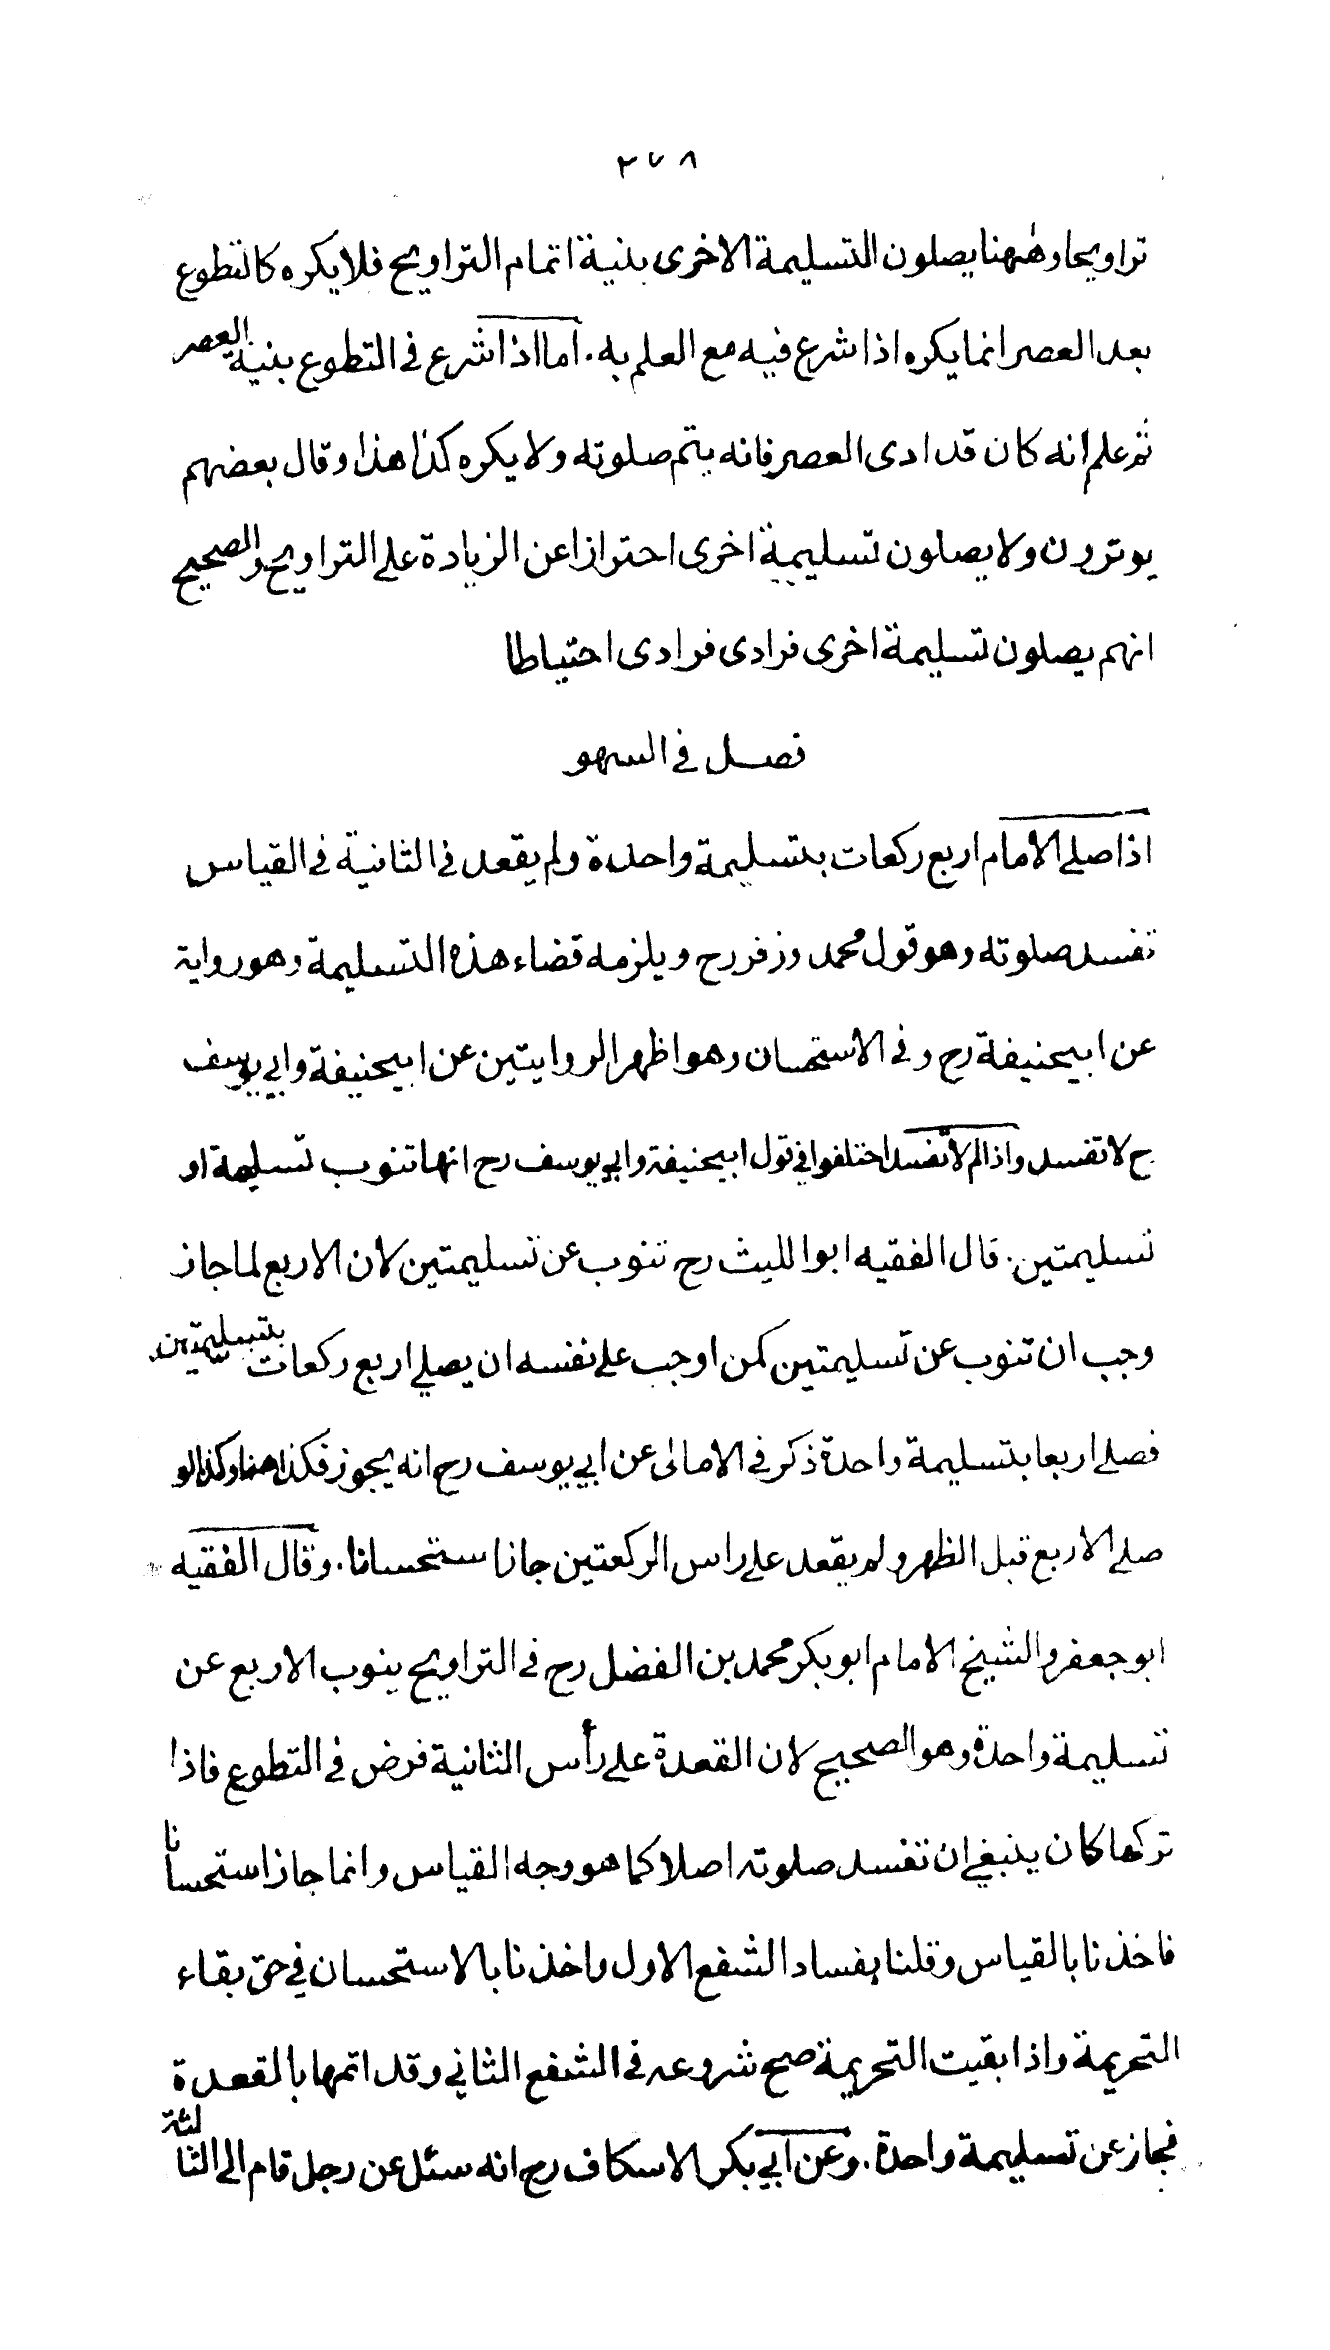 ٢٧٨
تراويحا وههنا يصلون التسليمة الاخرى بنية اتمام التراويح فلا يكره كالتطوع
بعد العصر انما يكره اذا شرع فيه مع العلم به. اما اذا شرع في التطوع بنية العصر
ثم علم انه كان قد ادى العصر فانه يتم صلوته ولا يكره كذا هذا وقال بعضهم
يوترون ولا يصلون تسليمة اخرى احترازا عن الزيادة على التراويح والصحيح
انهم يصلون تسليمة اخرى فرادى فرادى احتياطا
فصل في السهو
اذا صلى الامام اربع ركعات بتسليمة واحدة ولم يقعد في الثانية في القياس
تفسد صلوته وهو قول محمد وزفر رح ويلزمه قضاء هذه التسليمة وهو رواية
عن ابيحنيفة رح وفي الاستحسان وهو اظهر الروايتين عن ابيحنيفة وابي يوسف
رح لا تفسد واذا لم لا تفسد اختلفوا في قول ابيحنيفة وابي يوسف رح انها تنوب تسليمة او
تسليمتين. قال الفقيه ابوا الليث رح تنوب عن تسليمتين لان الاربع لما جاز
وجب ان تنوب عن تسليمتين كمن اوجب على نفسه ان يصلي اربع ركعات بتسليمتين
فصلى اربعا بتسليمة واحدة ذكر في الامالى عن ابي يوسف رح انه يجوز فكذا هنا وكذا لو
صلى الاربع قبل الظهر ولم يقعد على راس الركعتين جاز استحسانا. وقال الفقيه
ابو جعفر والشيخ الامام ابو بكر محمد بن الفضل رح في التراويح ينوب الاربع عن
تسليمة واحدة وهو الصحيح لان القعدة على رأس الثانية فرض في التطوع فاذا
تركها كان ينبغي ان تفسد صلوته اصلا كما هو وجه القياس وانما جاز استحسانا
فاخذنا بالقياس وقلنا بفساد الشفع الاول واخذنا بالاستحسان في حق بقاء
التحريمة واذا بقيت التحريمة صح شروعه في الشفع الثاني وقد اتمها بالقعدة
فجاز عن تسليمة واحدة. وعن ابي بكر الاسكاف رح انه سئل عن رجل قام الى الثالثة